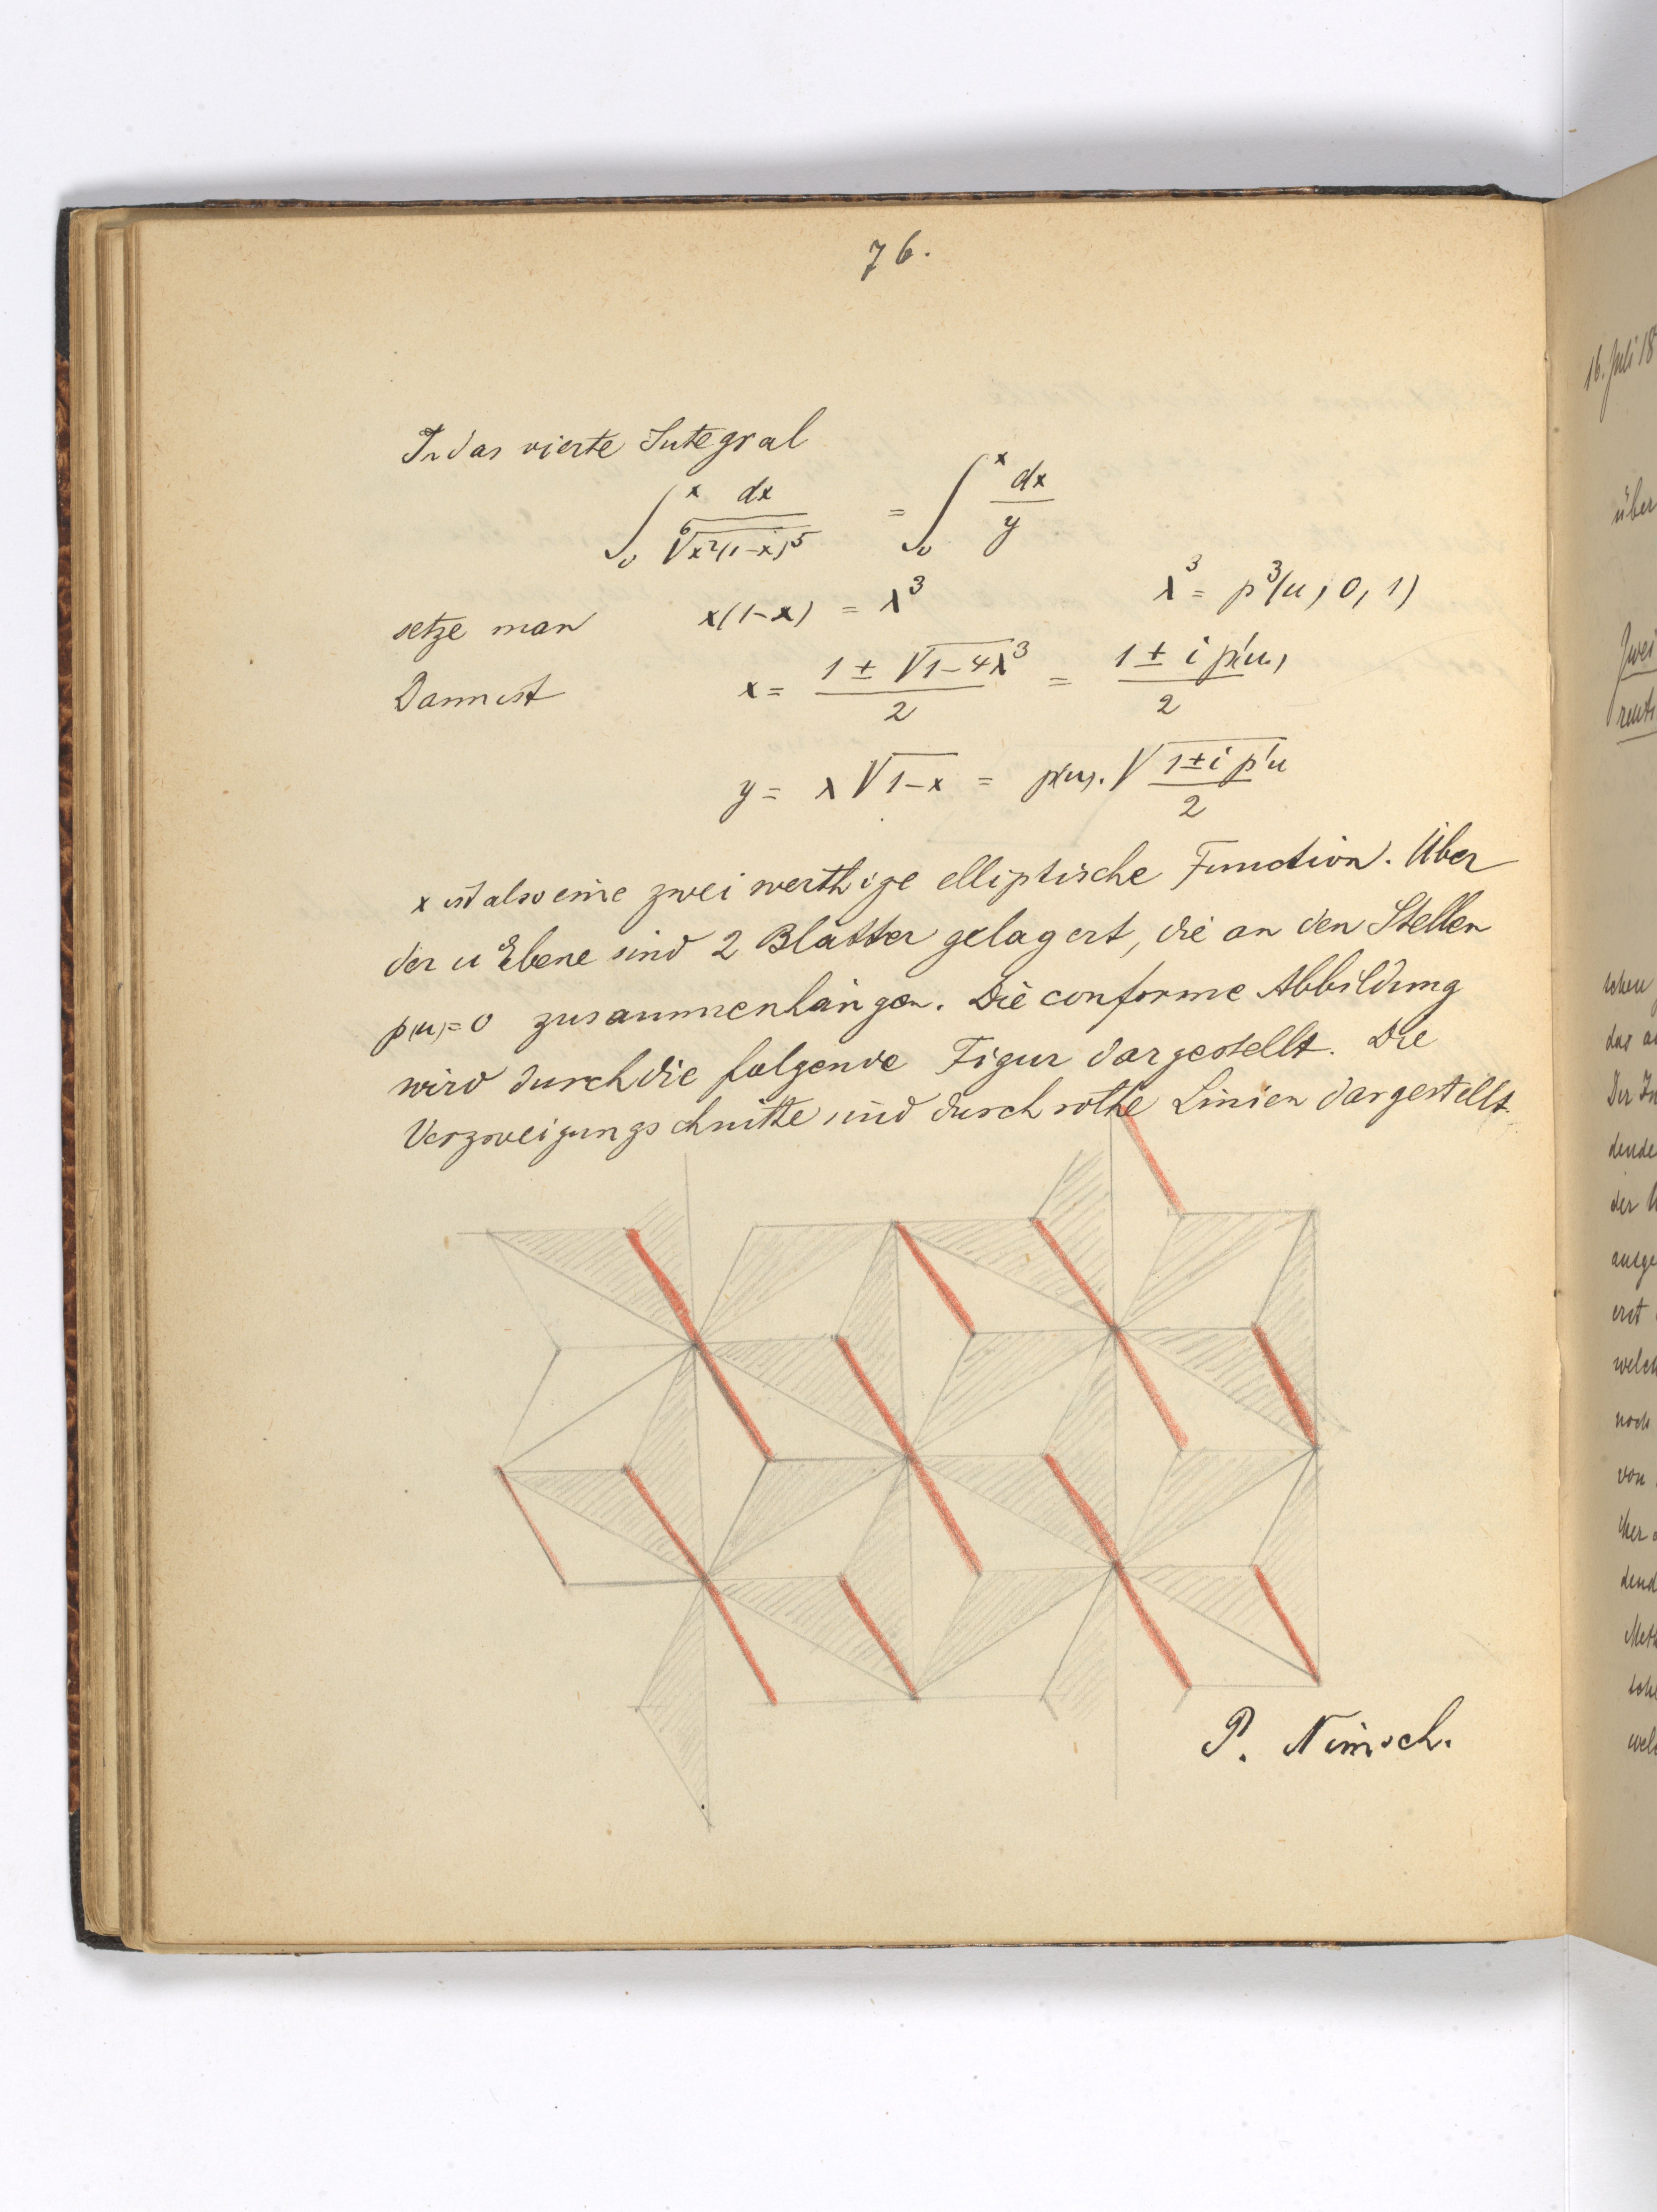 76.
In das vierte Integral
∫₀ˣ dx / ⁶√(x²(1-x)⁵) = ∫₀ˣ dx / y
setze man x(1-x) = λ³ λ³ = p³(u, 0, 1)
Dann ist x = (1 ± √(1-4λ³)) / 2 = (1 ± i p'(u)) / 2
y = λ √(1-x) = p(u). √((1 ± i p'u) / 2)
x ist also eine zwei werthige elliptische Function. Über
der u Ebene sind 2 Blätter gelagert, die an den Stellen
p(u)=0 zusammenhängen. Die conforme Abbildung
wird durch die folgende Figur dargestellt. Die
Verzweigungsschnitte sind durch rothe Linien dargestellt.
P. Nimsch.
16. Juli 18
über
Zwei
schen
das
Der In
dende
der
ausge
erst
welch
noch
von
dend
Met